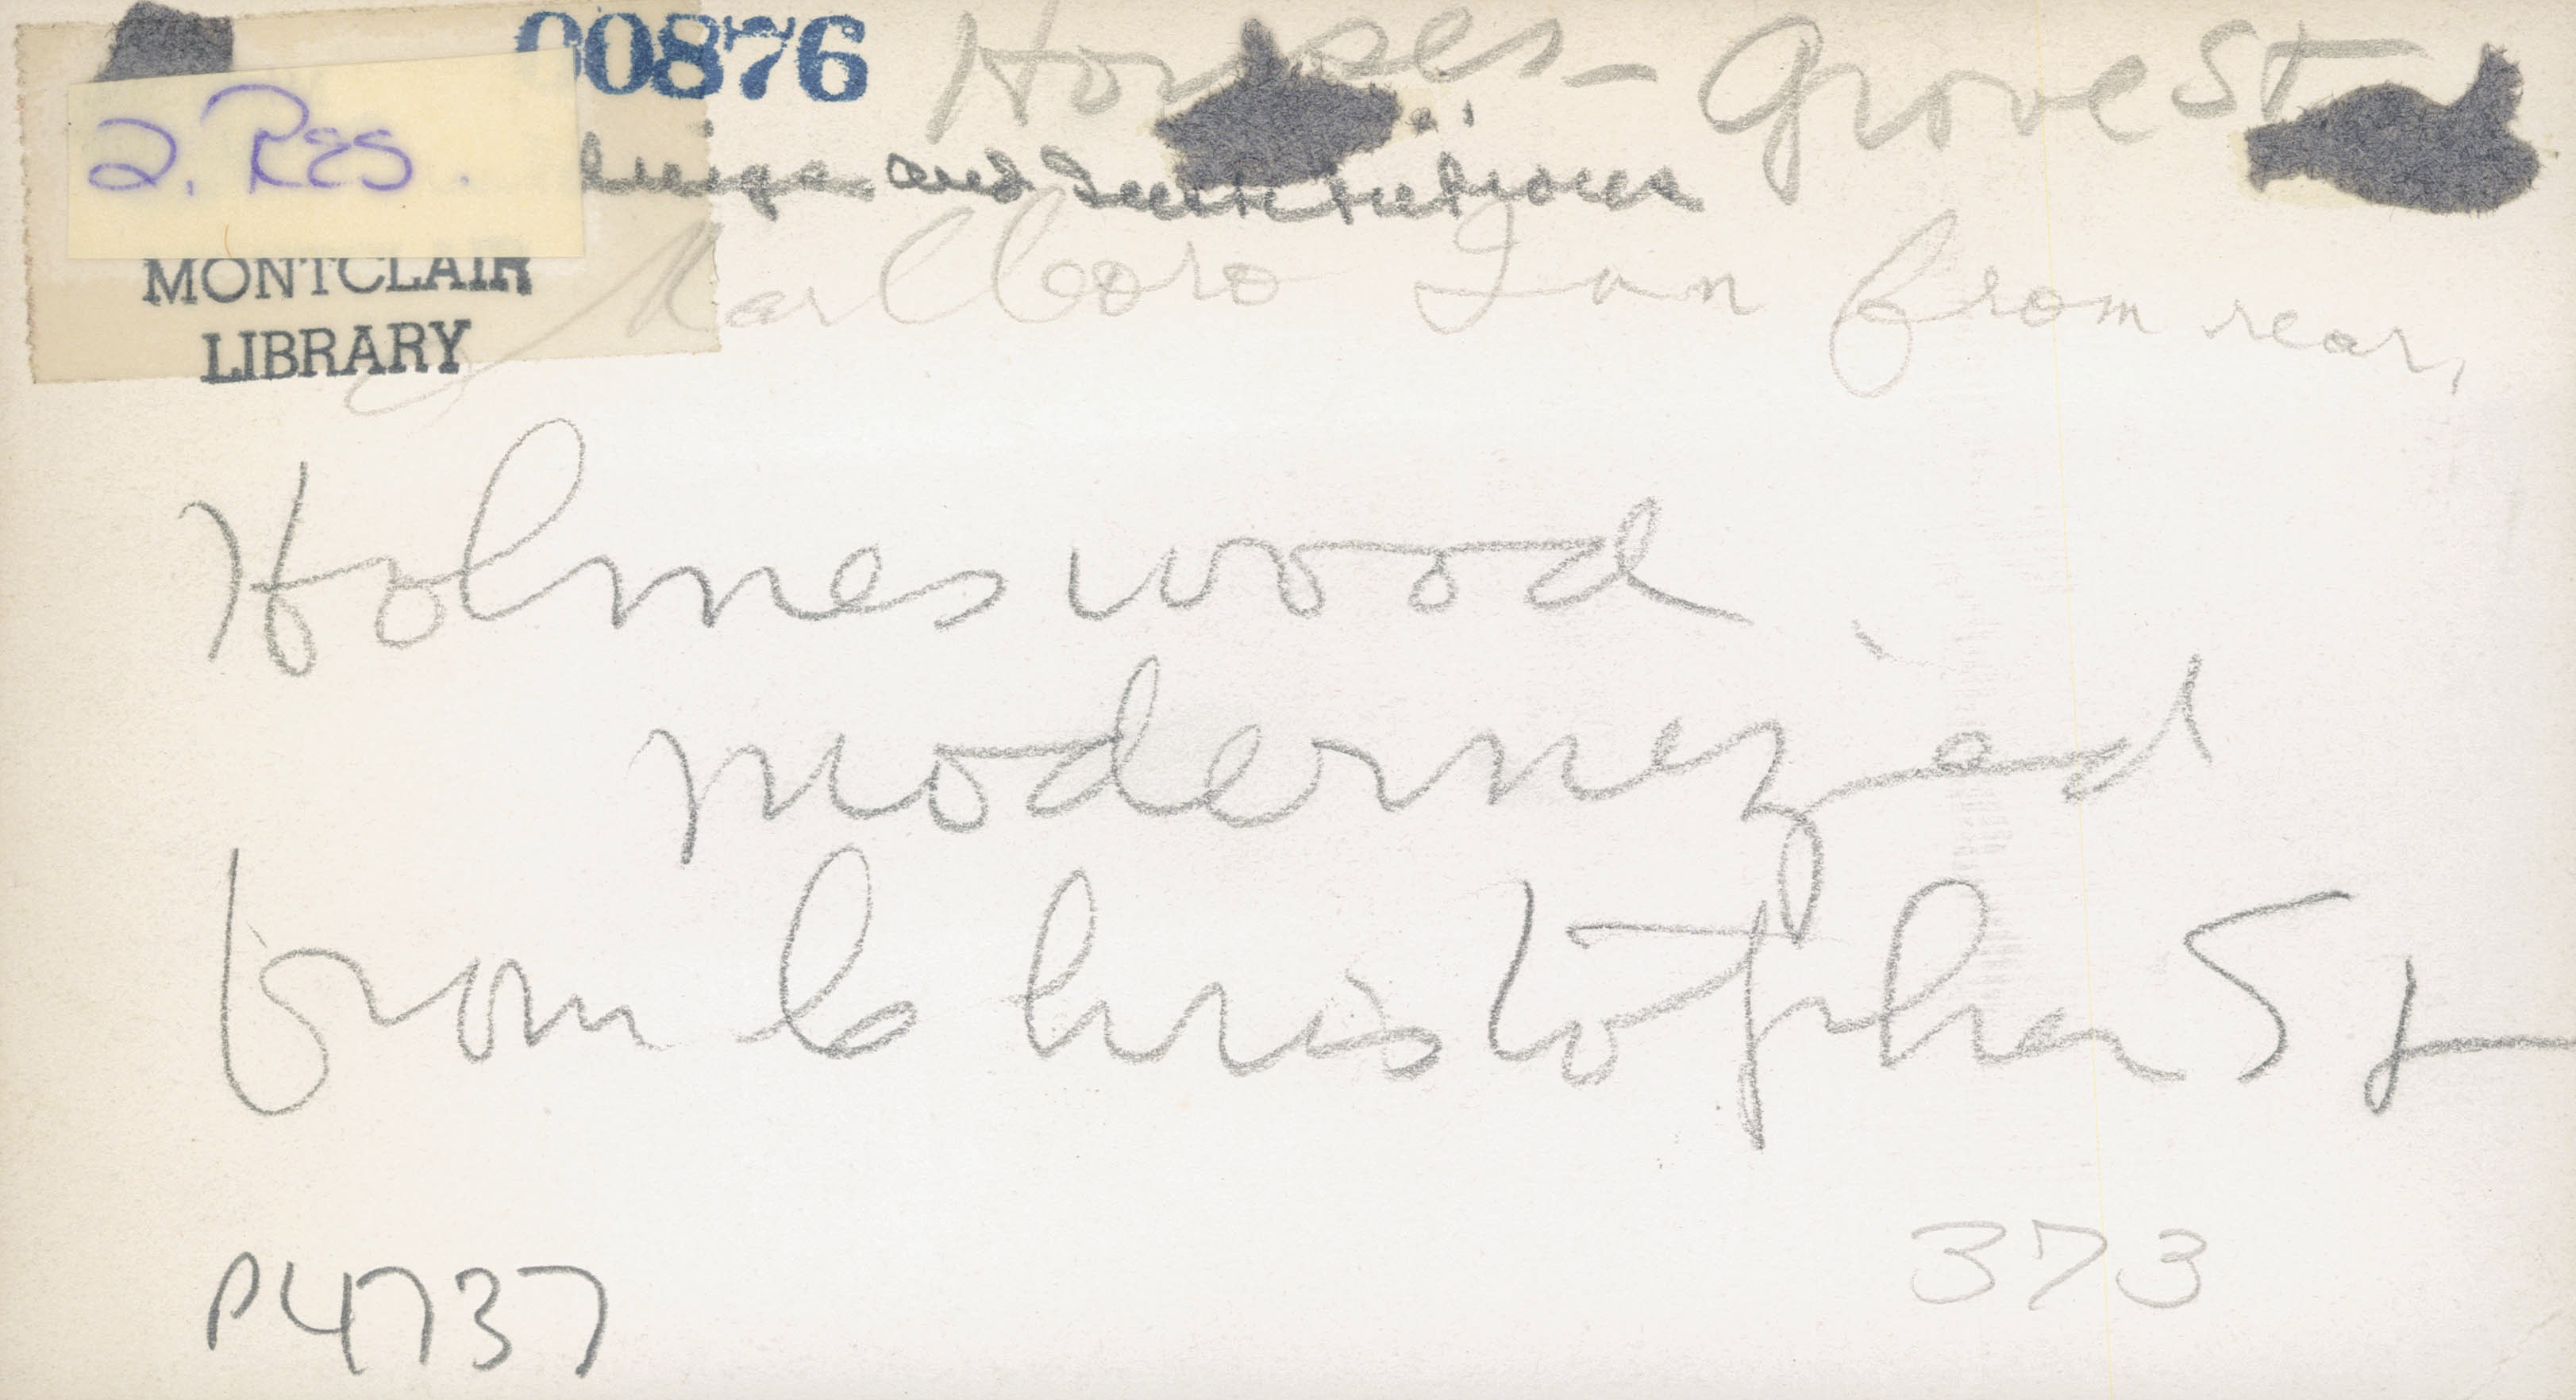 00876 Houses - Grove St
2. Res.
and Institutions
Marlboro Inn from rear,
MONTCLAIR
LIBRARY
Holmeswood
modernized
from Christopher St
373
P4737